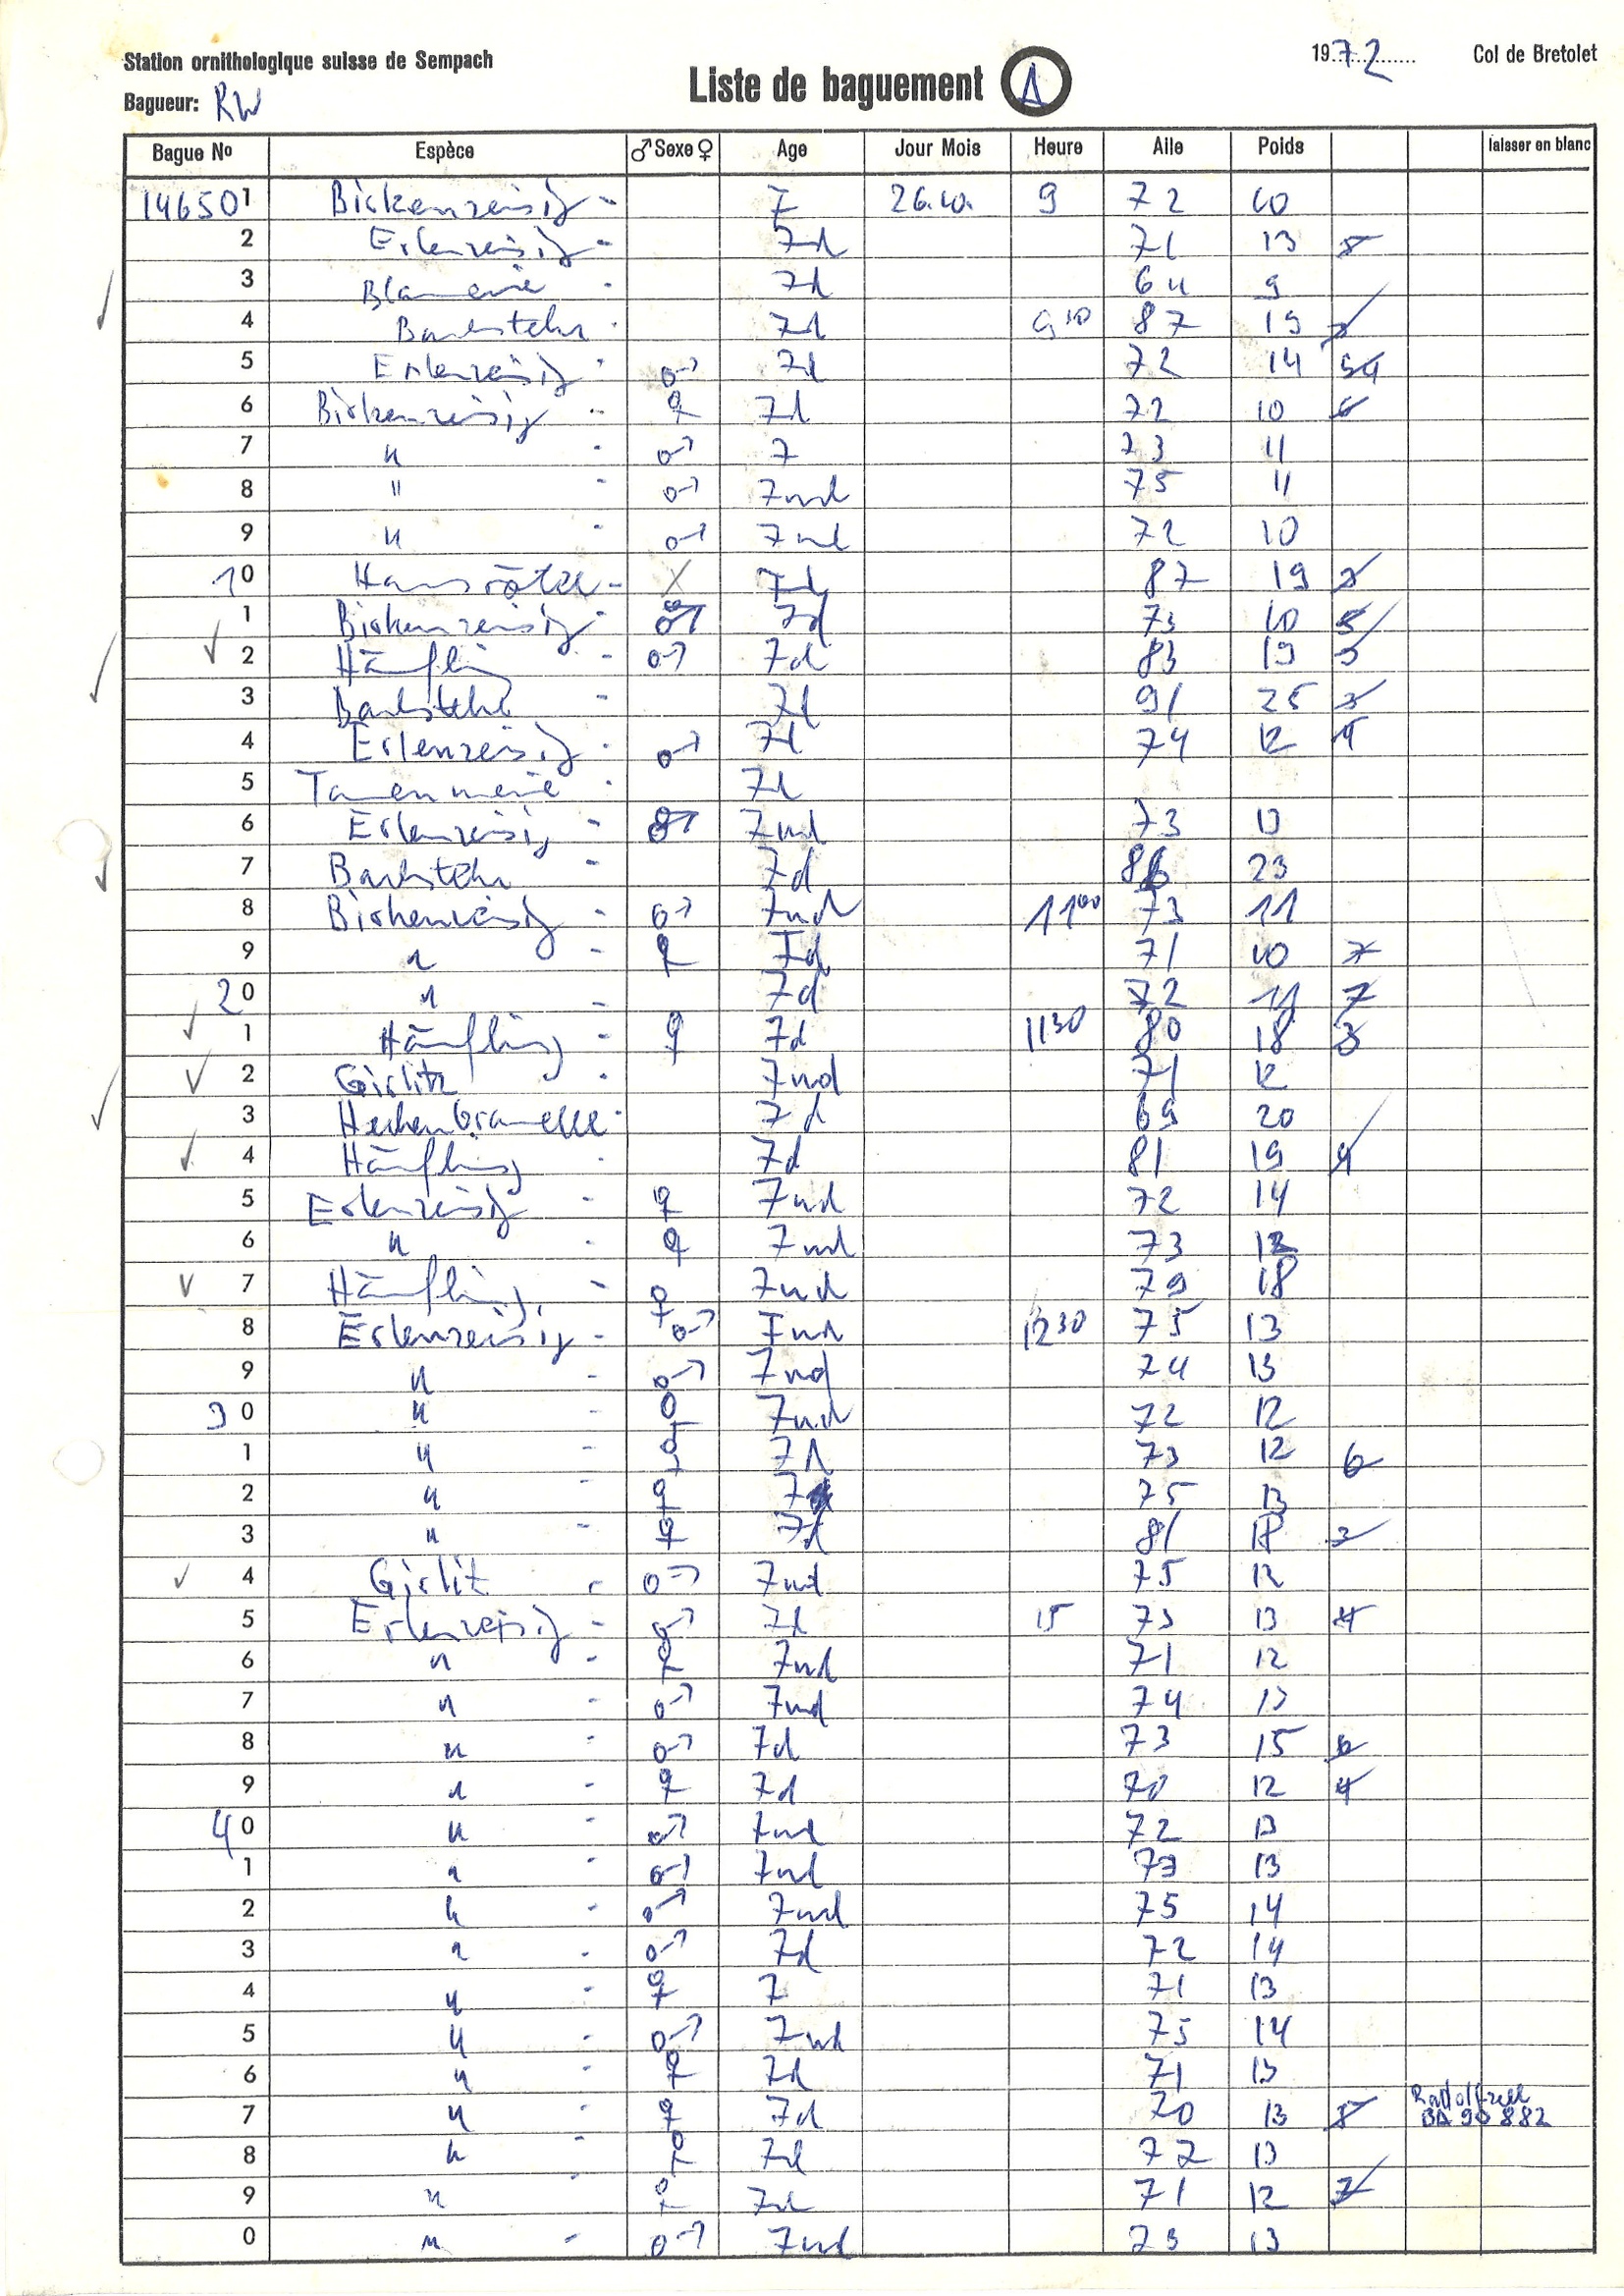 Station ornithologique suisse de Sempach
Bagueur: RW
Liste de baguement A
1972 Col de Bretolet
Bague No Espèce ♂ Sexe ♀ Age Jour Mois Heure Aile Poids laisser en blanc
146501 Birkenzeisig - 7 26.10. 9 72 10
2 Erlenzeisig - 7d 71 13
3 Blaumeise - 7d 64 9
4 7d 9 10 87 19
5 Erlenzeisig - ♂ 7d 72 14
6 Birkenzeisig - ♀ 7d 72 10
7 " - ♂ 7 73 11
8 " - ♂ 7nd 75 11
9 " - ♂ 7nd 72 10
10 Hausrötel - X 7d 87 19
1 Birkenzeisig - ♂ 7d 73 10
2 Hänfling ♂ 7d 83 19
3 - 7d 91 25
4 Erlenzeisig - ♂ 7d 74 12
5 Tannenmeise - 7d
6 Erlenzeisig - ♂ 7nd 73 13
7 - 7d 86 23
8 Birkenzeisig - ♂ 7nd 11 00 73 11
9 " - ♀ 7d 71 10 7
20 " - 7d 72 11 7
1 Hänfling - ♀ 7d 11 30 80 18 3
2 Girlitz - 7nd 71 12
3 Heckenbraunelle - 7d 69 20
4 Hänfling - 7d 81 19 4
5 Erlenzeisig - ♀ 7nd 72 14
6 " - ♀ 7nd 73 12
7 Hänfling - ♀ 7nd 79 18
8 Erlenzeisig - ♂ 7nd 12 30 75 13
9 " - ♂ 7nd 74 13
30 " - ♀ 7nd 72 12
1 " - ♀ 7d 73 12 6
2 " - ♀ 7d 75 13
3 " - ♀ 7d 81 18 3
4 Girlit - ♂ 7nd 75 12
5 Erlenzeisig - ♂ 7d 15 73 13 4
6 " - ♀ 7nd 71 12
7 " - ♂ 7nd 74 13
8 " - ♂ 7d 73 15 6
9 " - ♀ 7d 70 12 4
40 " - ♂ 7nd 72 13
1 " - ♂ 7nd 73 13
2 " - ♂ 7nd 75 14
3 " - ♂ 7d 72 14
4 " - ♀ 7 71 13
5 " - ♂ 7nd 75 14
6 " - ♀ 7d 71 13
7 " - ♀ 7d 70 13 Radolfzell
BA 90 882
8 " - ♀ 7d 72 13
9 " - ♀ 7d 71 12 7
0 " - ♂ 7nd 73 13